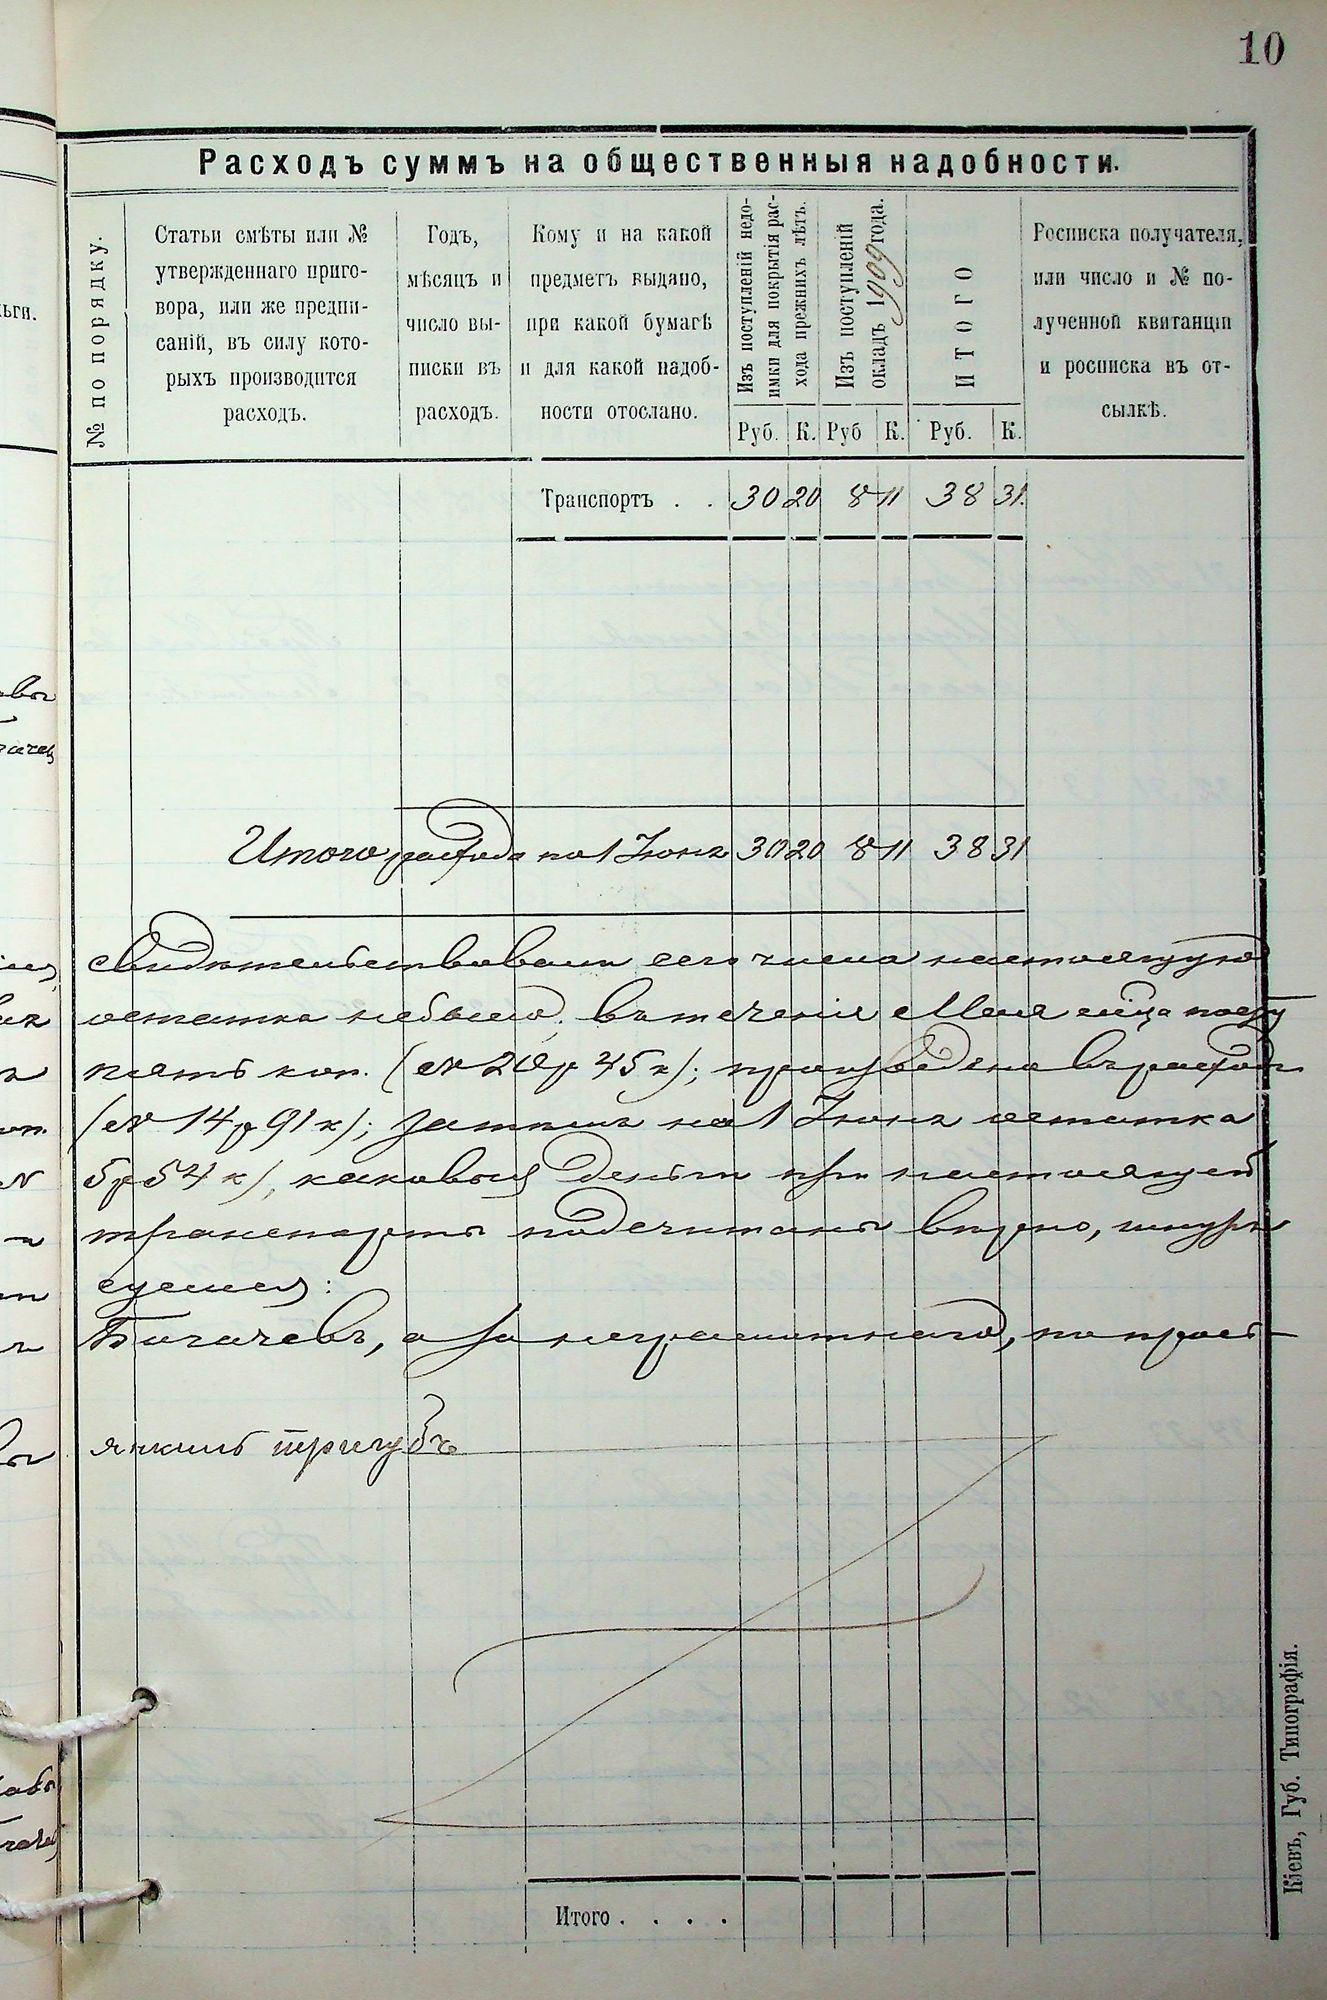 10
Расходъ суммъ на общественныя надобности.
№ по порядку.
Статьи смѣты или №
утвержденнаго приго-
вора, или же предпи-
саній, въ силу кото-
рыхъ производится
расходъ.
Годъ,
мѣсяцъ и
число вы-
писки въ
расходъ.
Кому и на какой
предметъ выдано,
при какой бумагѣ
и для какой надоб-
ности отослано.
Изъ поступленій недо-
имки для покрытія рас-
хода прежнихъ лѣтъ.
Изъ поступленій
окладъ 1909 года.
ИТОГО
Росписка получателя,
или число и № по-
лученной квитанціи
и росписка въ от-
сылкѣ.
Руб. К. Руб К. Руб. К.
Транспортъ . . 30 20 8 11 38 31
Итого расхода по 1 Іюня 30 20 8 11 38 31
свидѣтельствовали сего числа настоящую
остатка небыло; въ теченіе Мая м-ца посту
пять коп. (20 р 45 к); произведено въ расходъ
(14 р 91 к); затѣмъ на 1 Іюня остатка
5 р 54 к), каковыя деньги при настоящей
транспорты подсчитаны вѣрно, шнуръ
Бигачевъ, а за неграмотнаго, по прось-
якимъ пригубъ
Итого . . . .
Кіевъ, Губ. Типографія.